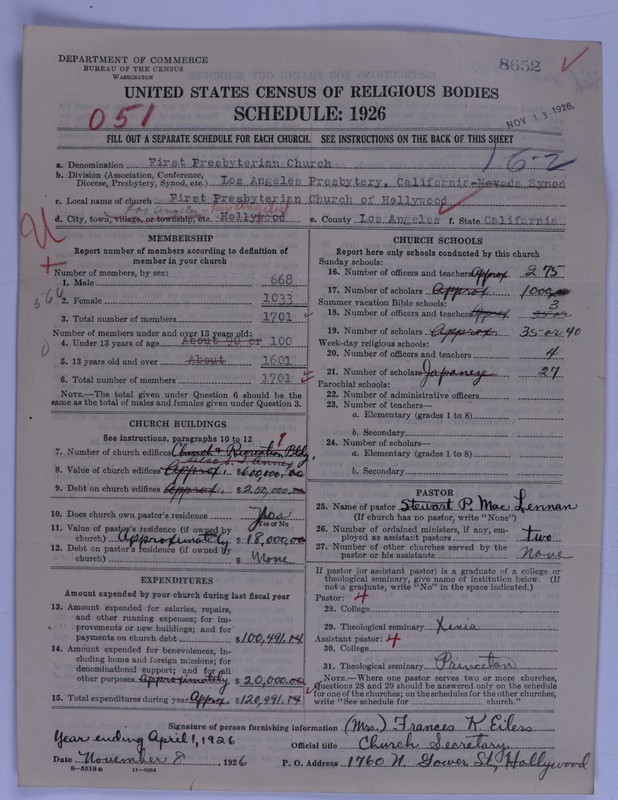 DEPARTMENT OF COMMERCE
BUREAU OF THE CENSUS
WASHINGTON
8652
UNITED STATES CENSUS OF RELIGIOUS BODIES
SCHEDULE: 1926
051
NOV 13 1926.
FILL OUT A SEPARATE SCHEDULE FOR EACH CHURCH. SEE INSTRUCTIONS ON THE BACK OF THIS SHEET
16-2
a. Denomination First Presbyterian Church
b. Division (Association, Conference,
Diocese, Presbytery, Synod, etc.) Los Angeles Presbytery, California-Nevada Synod
c. Local name of church First Presbyterian Church of Hollywood
Los Angeles Los Angeles
d. City, town, village, or township, etc. Hollywood e. County Los Angeles f. State California
MEMBERSHIP
Report number of members according to definition of
member in your church
Number of members, by sex:
1. Male 668
2. Female 1033
3. Total number of members 1701
Number of members under and over 13 years old:
4. Under 13 years of age About 90 or 100
5. 13 years old and over About 1601
6. Total number of members 1701
NOTE.—The total given under Question 6 should be
the same as the total of males and females given under Question 3.
CHURCH BUILDINGS
See instructions, paragraphs 10 to 12
1
7. Number of church edifices Church & Recreation Bldg.
also S. S. Annex
8. Value of church edifices Approx. $600,000.00
9. Debt on church edifices Approx. $250,000.00
10. Does church own pastor's residence Yes
Yes or No
11. Value of pastor's residence (if owned by
church) Approximately $18,000.00
12. Debt on pastor's residence (if owned by
church) $ None
EXPENDITURES
Amount expended by your church during last fiscal year
13. Amount expended for salaries, repairs,
and other running expenses; for im-
provements or new buildings; and for
payments on church debt $100,491.14
14. Amount expended for benevolences, in-
cluding home and foreign missions; for
denominational support; and for all
other purposes Approximately $20,000.00
15. Total expenditures during year Approx $120,491.14
CHURCH SCHOOLS
Report here only schools conducted by this church
Sunday schools:
16. Number of officers and teachers Approx 275
17. Number of scholars Approx 1000
Summer vacation Bible schools:
3
18. Number of officers and teachers Approx
19. Number of scholars Approx. 35 or 40
Week-day religious schools:
20. Number of officers and teachers 4
21. Number of scholars Japanese 27
Parochial schools:
22. Number of administrative officers
23. Number of teachers—
a. Elementary (grades 1 to 8)
b. Secondary
24. Number of scholars—
a. Elementary (grades 1 to 8)
b. Secondary
PASTOR
25. Name of pastor Stewart P. Mac Lennan
(If church has no pastor, write "None")
26. Number of ordained ministers, if any, em-
ployed as assistant pastors two
27. Number of other churches served by the
pastor or his assistants None
If pastor (or assistant pastor) is a graduate of a college or
theological seminary, give name of institution below. (If
not a graduate, write "No" in the space indicated.)
Pastor: 4
28. College
29. Theological seminary Xenia
Assistant pastor: 4
30. College
31. Theological seminary Princeton
NOTE.—Where one pastor serves two or more churches,
Questions 28 and 29 should be answered only on the schedule
for one of the churches; on the schedules for the other churches,
write "See schedule for church."
Signature of person furnishing information (Mrs.) Frances K. Eilers
Year ending April 1, 1926
Official title Church Secretary
Date November 8, 1926 P. O. Address 1760 N. Gower St, Hollywood
8—5518 a 11—9054